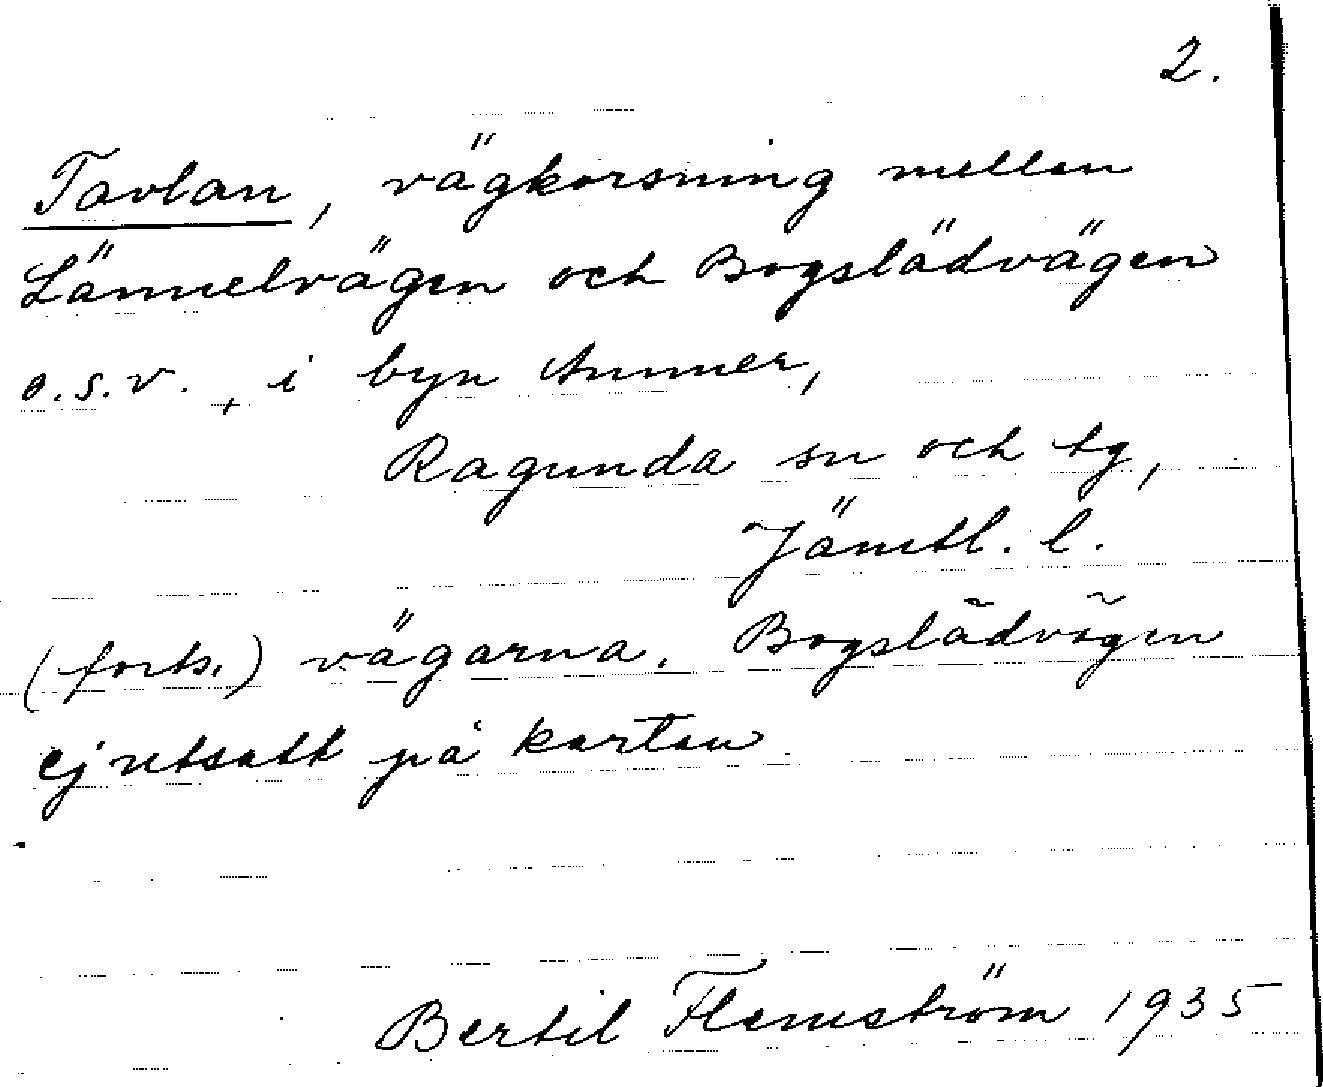 2.
Tavlan, vägkorsning mellan
Lännelvägen och Bogslädvägen
o.s.v., i byn Ammer,
Ragunda sn och tg,
Jämtl. l.
(forts.) vägarna. Bogslädvägen
ej utsatt på kartan
Bertil Flemström 1935